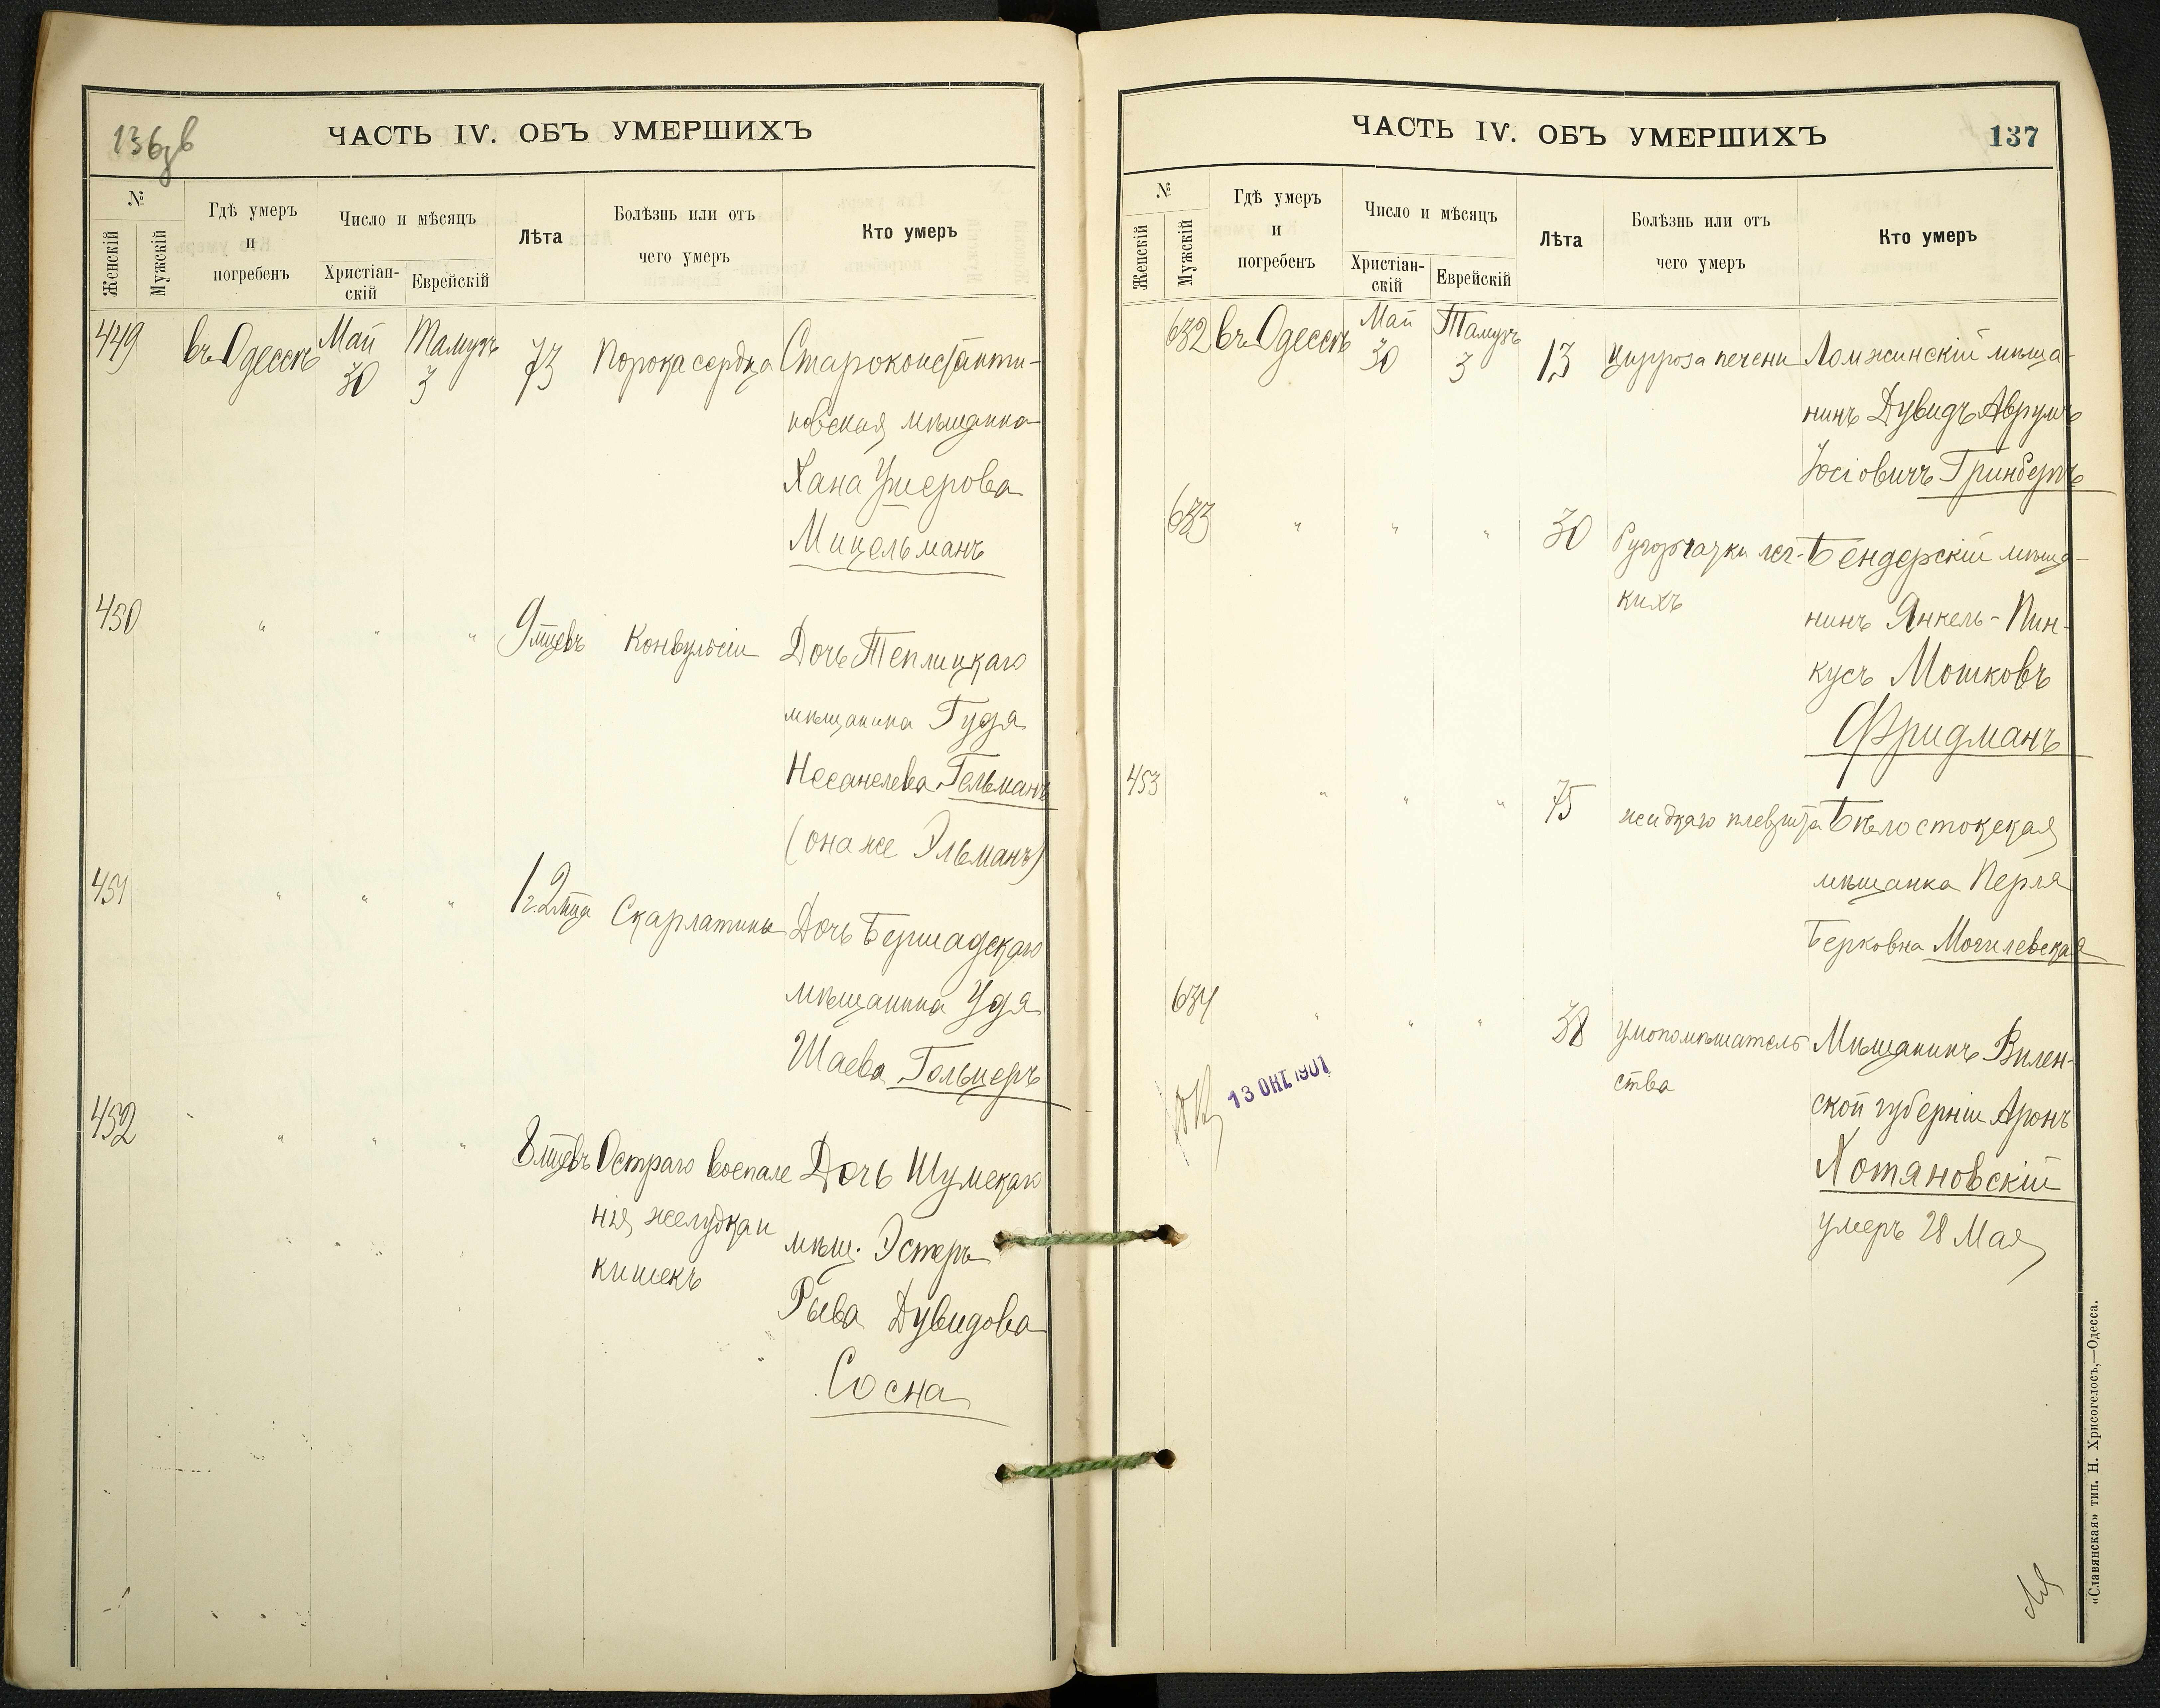 136зв
ЧАСТЬ IV. ОБЪ УМЕРШИХЪ
№
Женскій
Мужскій
Гдѣ умеръ
и
погребенъ
Число и мѣсяцъ
Христіан-
скій
Еврейскій
Лѣта
Болѣзнь или отъ
чего умеръ
Кто умеръ
449 въ Одессѣ Май 30 Тамузъ 3 73 Порока сердца Староконстанти-
новская мѣщанка
Хана Ушерова
Мицельманъ
450 " " " 9 мцевъ Конвульсіи Дочь Теплицкаго
мѣщанина Гудя
Несанелева Гельманъ
(она же Эльманъ)
451 " " " 1 г. 2 мца Скарлатины Дочь Бершадскаго
мѣщанина Удя
Шаева Гольцеръ
452 " " " 8 мцевъ Остраго воспале Дочь Шумскаго
нія желудка и мѣщ. Эстеръ
кишекъ Рыва Дувидова
Сосна
ЧАСТЬ IV. ОБЪ УМЕРШИХЪ
137
№
Женскій
Мужскій
Гдѣ умеръ
и
погребенъ
Число и мѣсяцъ
Христіан-
скій
Еврейскій
Лѣта
Болѣзнь или отъ
чего умеръ
Кто умеръ
632 въ Одессѣ Май 30 Тамузъ 3 13 Цирроза печени Ломжинскій мѣща-
нинъ Дувидъ Аврумъ
Іосіовичъ Гринбергъ
633 " " " 30 Бугорчатки лег- Бендерскій мѣща-
кихъ нинъ Янкель-Пин-
кусъ Мошковъ
Фридманъ
453 " " " 75 жидкаго плеврита Бѣлостокская
мѣщанка Перля
Берковна Могилевская
634 " " " 38 умопомѣшатель Мѣщанинъ Вилен-
ства ской губерніи Аронъ
Хотяновскій
умеръ 28 Мая
13 ОКТ 1901
«Славянская» тип. Н. Хрисогелосъ,—Одесса.